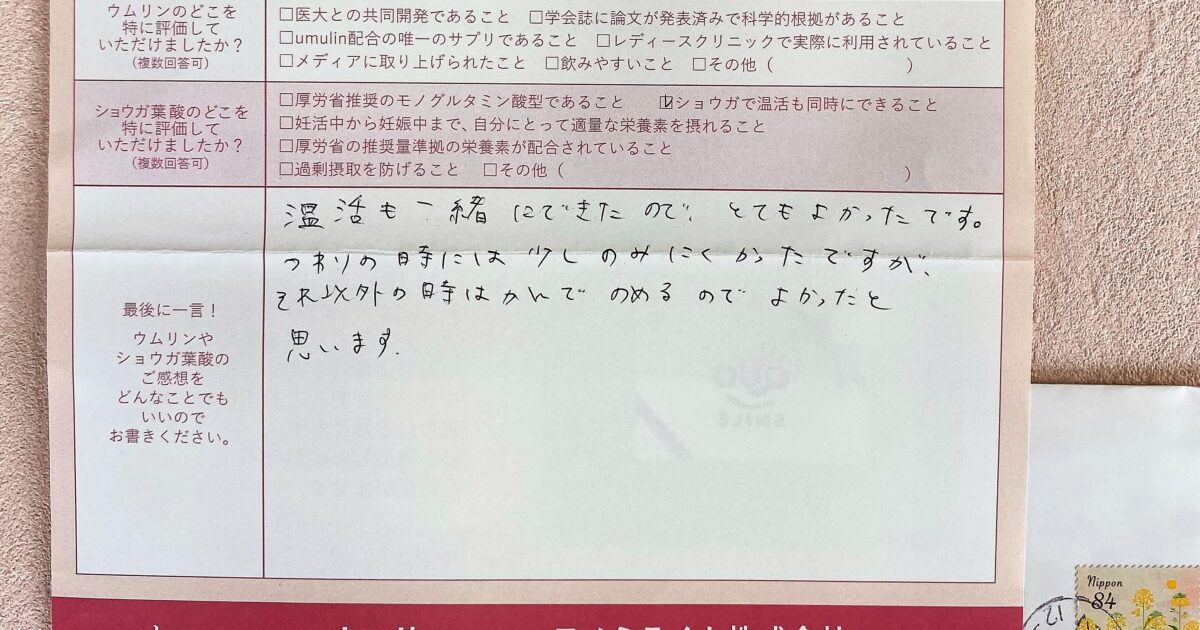 ウムリンのどこを
特に評価して
いただけましたか？
（複数回答可）
□医大との共同開発であること □学会誌に論文が発表済みで科学的根拠があること
□umulin配合の唯一のサプリであること □レディースクリニックで実際に利用されていること
□メディアに取り上げられたこと □飲みやすいこと □その他（ ）
ショウガ葉酸のどこを
特に評価して
いただけましたか？
（複数回答可）
□厚労省推奨のモノグルタミン酸型であること ☑ショウガで温活も同時にできること
□妊活中から妊娠中まで、自分にとって適量な栄養素を摂れること
□厚労省の推奨量準拠の栄養素が配合されていること
□過剰摂取を防げること □その他（ ）
最後に一言！
ウムリンや
ショウガ葉酸の
ご感想を
どんなことでも
いいので
お書きください。
温活も一緒にできたので、とてもよかったです。
つわりの時には少しのみにくかったですが、
それ以外の時はかんでのめるのでよかったと
思います.
Nippon
84